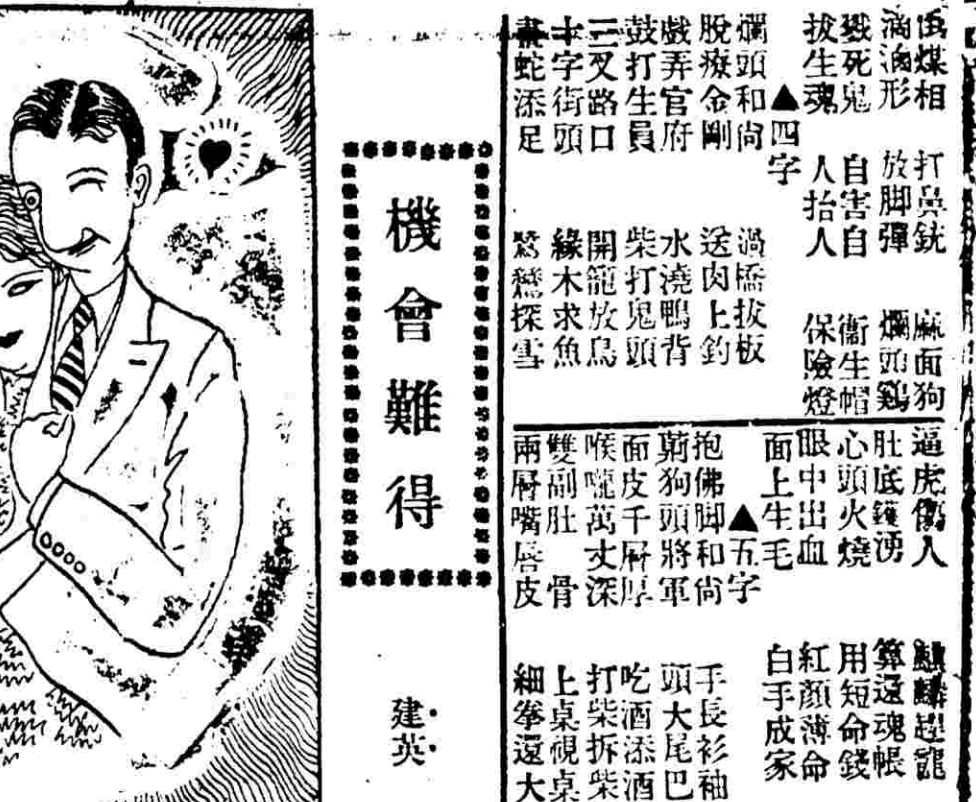 煤相　打鼻銃　麻面狗
滴形　放脚彈　爛頭鷄
死鬼　自害自　衞生帽
拔生魂　人抬人　保險燈
▲四字
爛頭和尚　過橋拔板
脫療金剛　送肉上釣
戲弄官府　水澆鴨背
鼓打生員　柴打鬼頭
三叉路口　開籠放鳥
十字街頭　緣木求魚
畫蛇添足　鷺鷥探雪
逼虎傷人　趕龍
肚底鑊湧　算還魂帳
心頭火燒　用短命錢
眼中出血　紅顏薄命
面上生毛　白手成家
▲五字
抱佛脚和尚　手長衫袖
狗頭將軍　頭大尾巴
面皮千層厚　吃酒添酒
喉嚨萬丈深　打柴拆柴
雙副肚骨　上桌視桌
兩層嘴唇皮　細拳還大
機會難得
建英